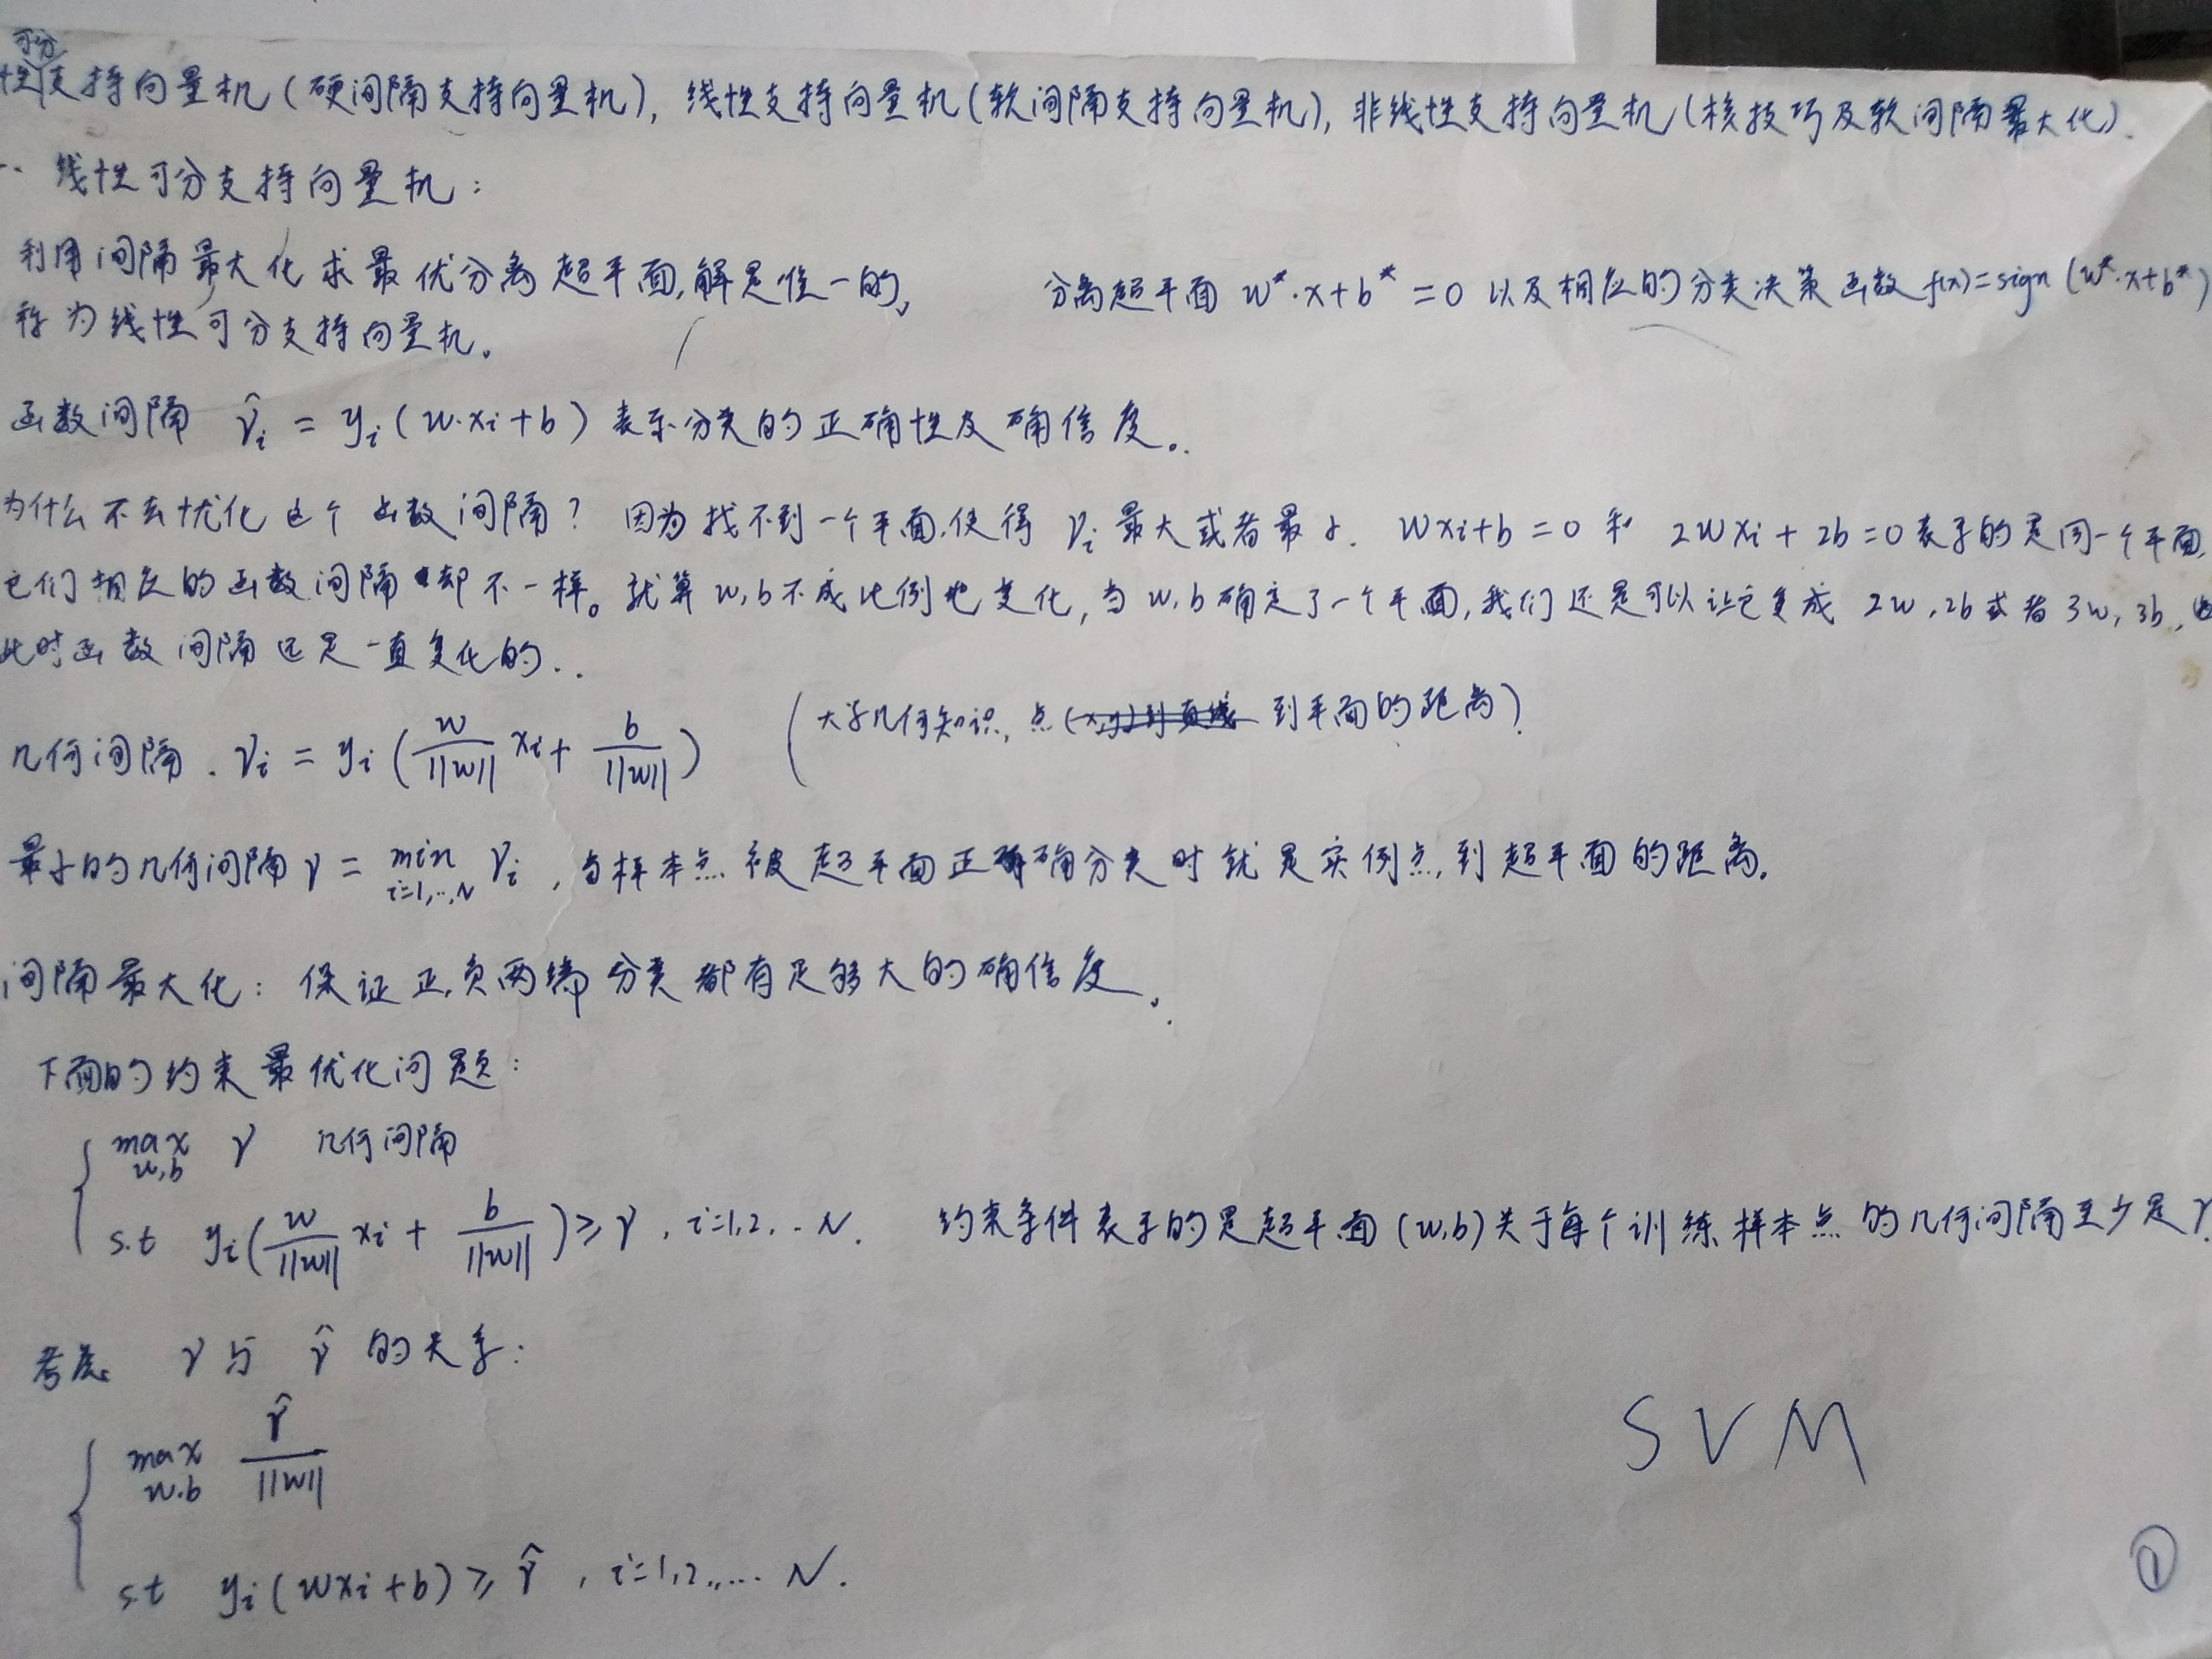 可分
性支持向量机(硬间隔支持向量机), 线性支持向量机(软间隔支持向量机), 非线性支持向量机(核技巧及软间隔最大化).
线性可分支持向量机:
利用间隔最大化求最优分离超平面,解是唯一的, 分离超平面 w*·x+b* = 0 以及相应的分类决策函数 f(x)=sign(w*·x+b*)
称为线性可分支持向量机。
函数间隔 γ̂i = yi(w·xi+b) 表示分类的正确性及确信度。
为什么不去优化这个函数间隔? 因为找不到一个平面,使得 γi 最大或者最小. wxi+b=0 和 2wxi+2b=0 表示的是同一个平面,
它们相应的函数间隔却不一样。就算 w,b 不成比例地变化,当 w,b 确定了一个平面,我们还是可以让它变成 2w,2b 或者 3w,3b,
此时函数间隔还是一直变化的.
几何间隔. γi = yi(w/||w|| xi + b/||w||) (大学几何知识, 点到平面的距离)
最小的几何间隔 γ = min i=1,…,N γi , 当样本点被超平面正确分类时就是实例点到超平面的距离.
间隔最大化: 保证正,负两端分类都有足够大的确信度。
下面的约束最优化问题:
max w,b γ 几何间隔
s.t yi(w/||w|| xi + b/||w||) ≥ γ, i=1,2,..N. 约束条件表示的是超平面 (w,b) 关于每个训练样本点的几何间隔至少是 γ.
考虑 γ 与 γ̂ 的关系:
max w.b γ̂/||w||
s.t yi(wxi+b) ≥ γ̂, i=1,2,.... N.
SVM
①